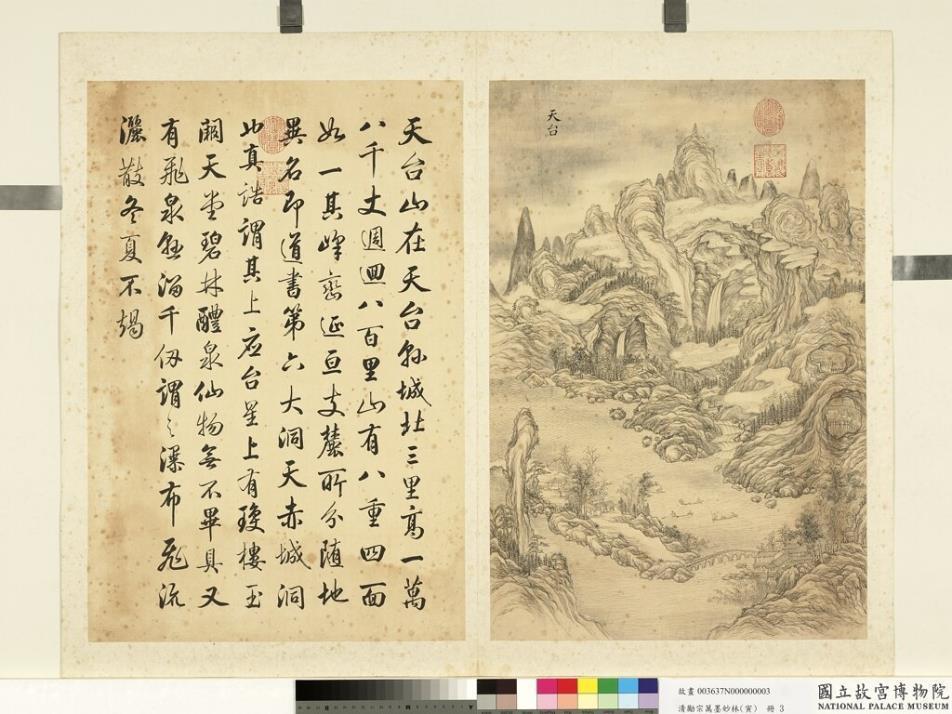 天台
天台山在天台縣城北三里高一萬
八千丈週迴八百里山有八重四面
如一其峰巒延亘支麓所分随地
異名即道書第六大洞天赤城洞
也真誥謂其上應台星上有瓊樓玉
闕天堂碧林醴泉仙物無不畢具又
有飛泉懸溜千仭謂之瀑布飛流
灑散冬夏不竭
故畫 003637N000000003
清勵宗萬墨妙珠林(寅) 冊 3
國立故宮博物院
NATIONAL PALACE MUSEUM